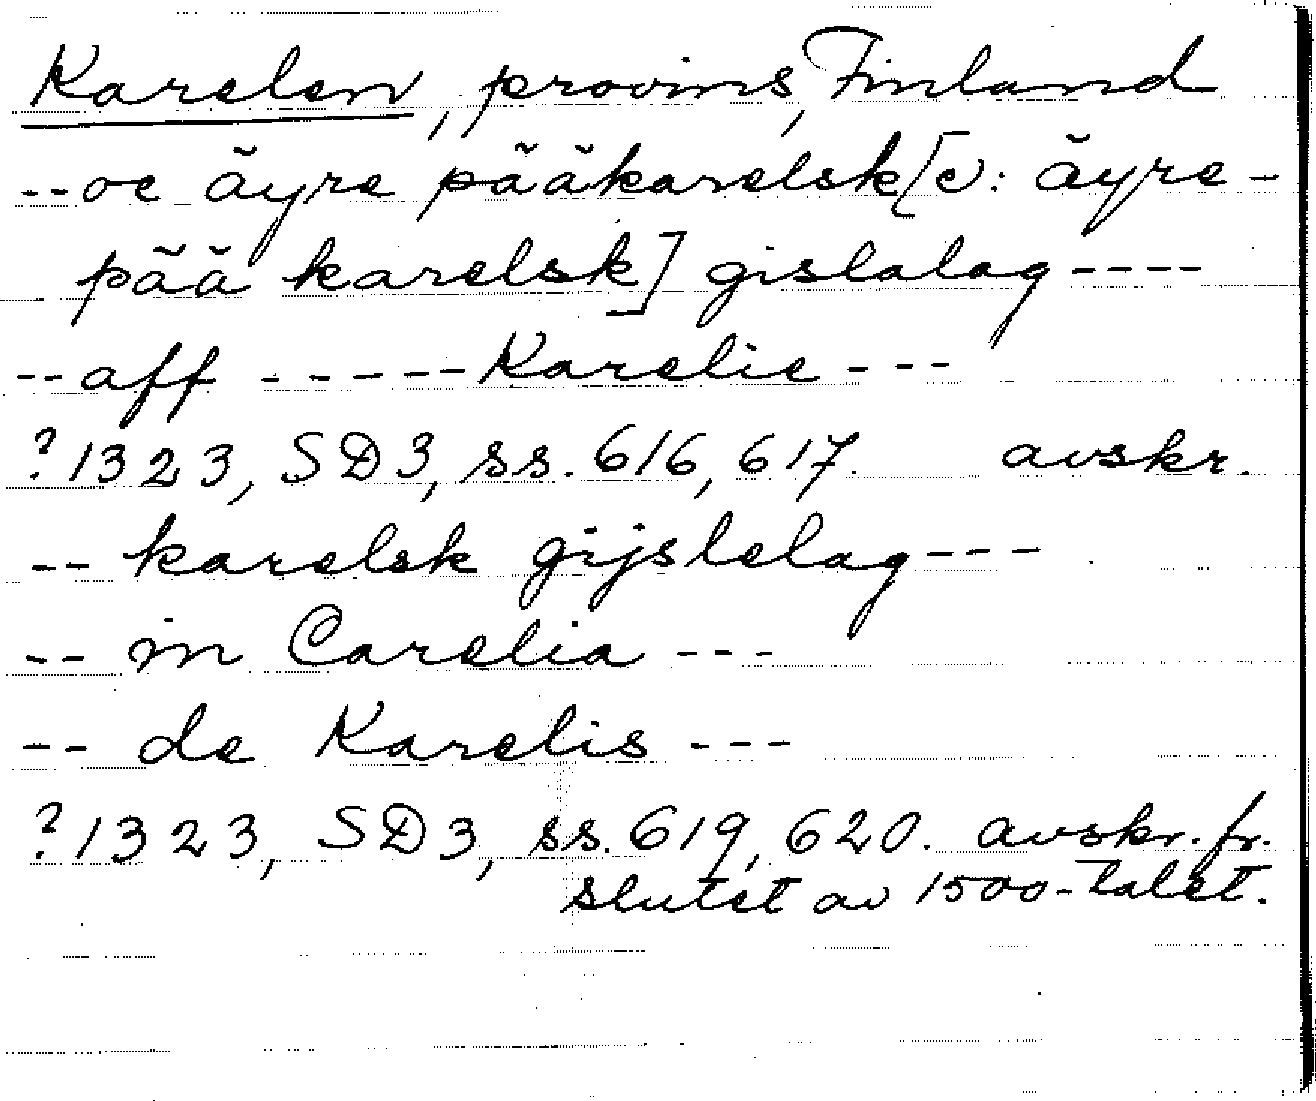 Karelen, provins, Finland
--oc äyre pääkarelsk[ɔ: äyre-
pää karelsk] gislalag----
--aff -----Karelie---
?1323, SD3, ss. 616, 617. avskr.
-- karelsk gijslelag---
-- in Carelia ---
-- de Karelis ---
?1323, SD3, ss. 619, 620. avskr. fr.
slutet av 1500-talet.